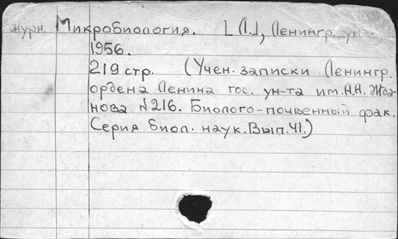 журн. Микробиология. [Л.], Ленингр. ун-
1956.
219 стр. (Учен. записки Ленингр.
ордена Ленина гос. ун-та им. А.А. Жда-
нова. №216. Биолого-почвенный фак.
Серия биол. наук. Вып. 41.)